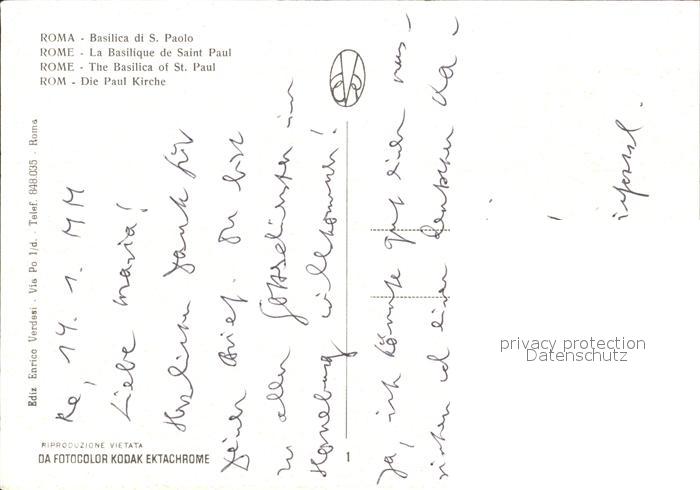 ROMA - Basilica di S. Paolo
ROME - La Basilique de Saint Paul
ROME - The Basilica of St. Paul
ROM - Die Paul Kirche
Ediz. Enrico Verdesi - Via Po 1/d. - Telef. 848.035 - Roma
RIPRODUZIONE VIETATA
DA FOTOCOLOR KODAK EKTACHROME
1
14. 1.
Liebe Maria!
Herzlichen Dank für
Deinen Brief. Du bist
zu allen Gottesdiensten im
willkommen!
Ja, ich könnte gut einen
einen deutschen
privacy protection
Datenschutz